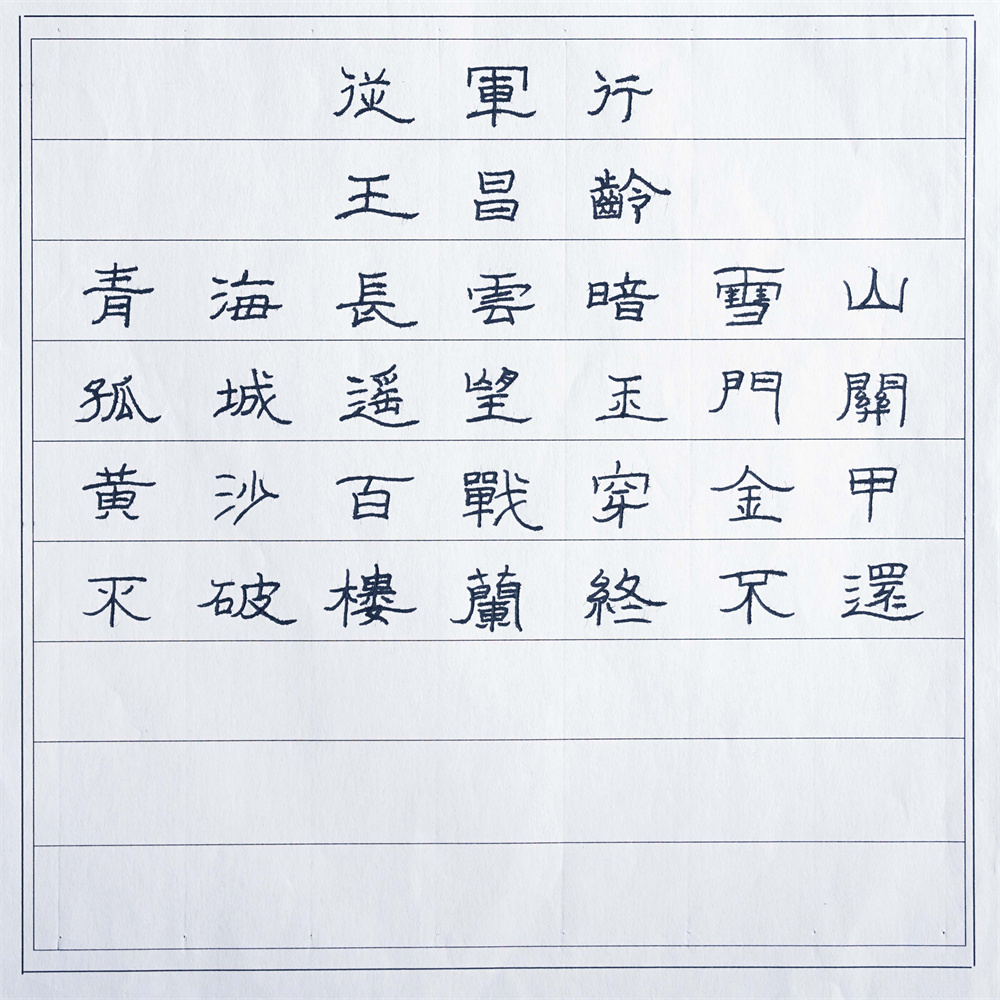 從軍行
王昌齡
青海長雲暗雪山
孤城遥望玉門關
黃沙百戰穿金甲
不破樓蘭終不還